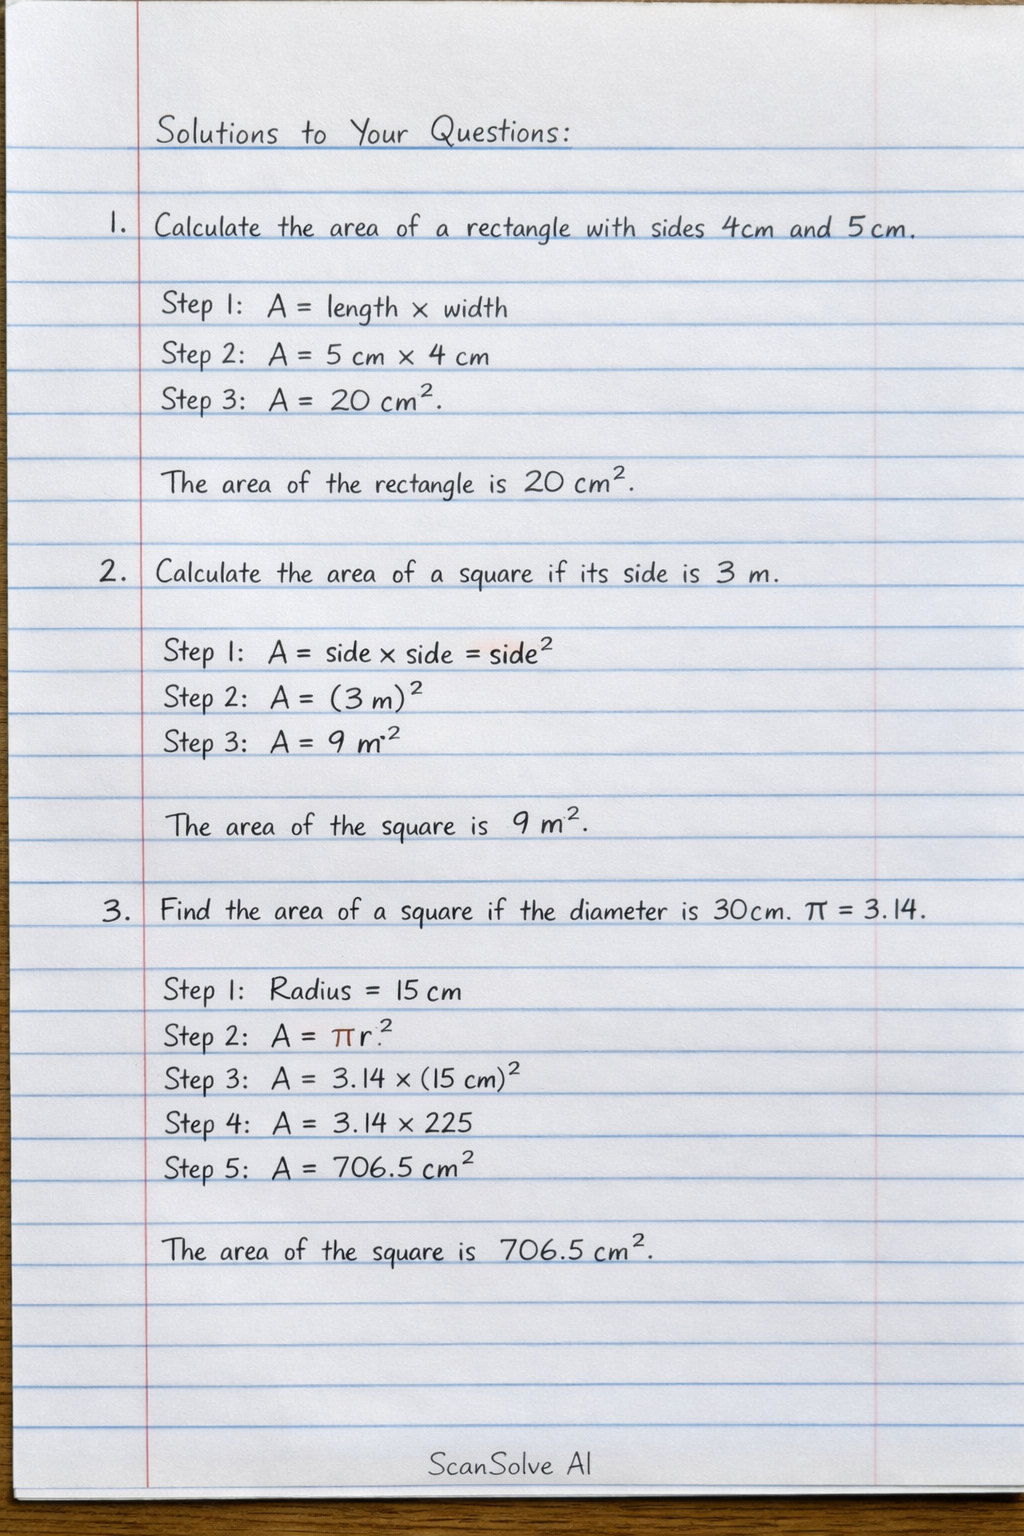 Solutions to Your Questions:
1. Calculate the area of a rectangle with sides 4cm and 5cm.
Step 1: A = length × width
Step 2: A = 5 cm × 4 cm
Step 3: A = 20 cm².
The area of the rectangle is 20 cm².
2. Calculate the area of a square if its side is 3 m.
Step 1: A = side × side = side²
Step 2: A = (3 m)²
Step 3: A = 9 m²
The area of the square is 9 m².
3. Find the area of a square if the diameter is 30cm. π = 3.14.
Step 1: Radius = 15 cm
Step 2: A = πr²
Step 3: A = 3.14 × (15 cm)²
Step 4: A = 3.14 × 225
Step 5: A = 706.5 cm²
The area of the square is 706.5 cm².
ScanSolve AI